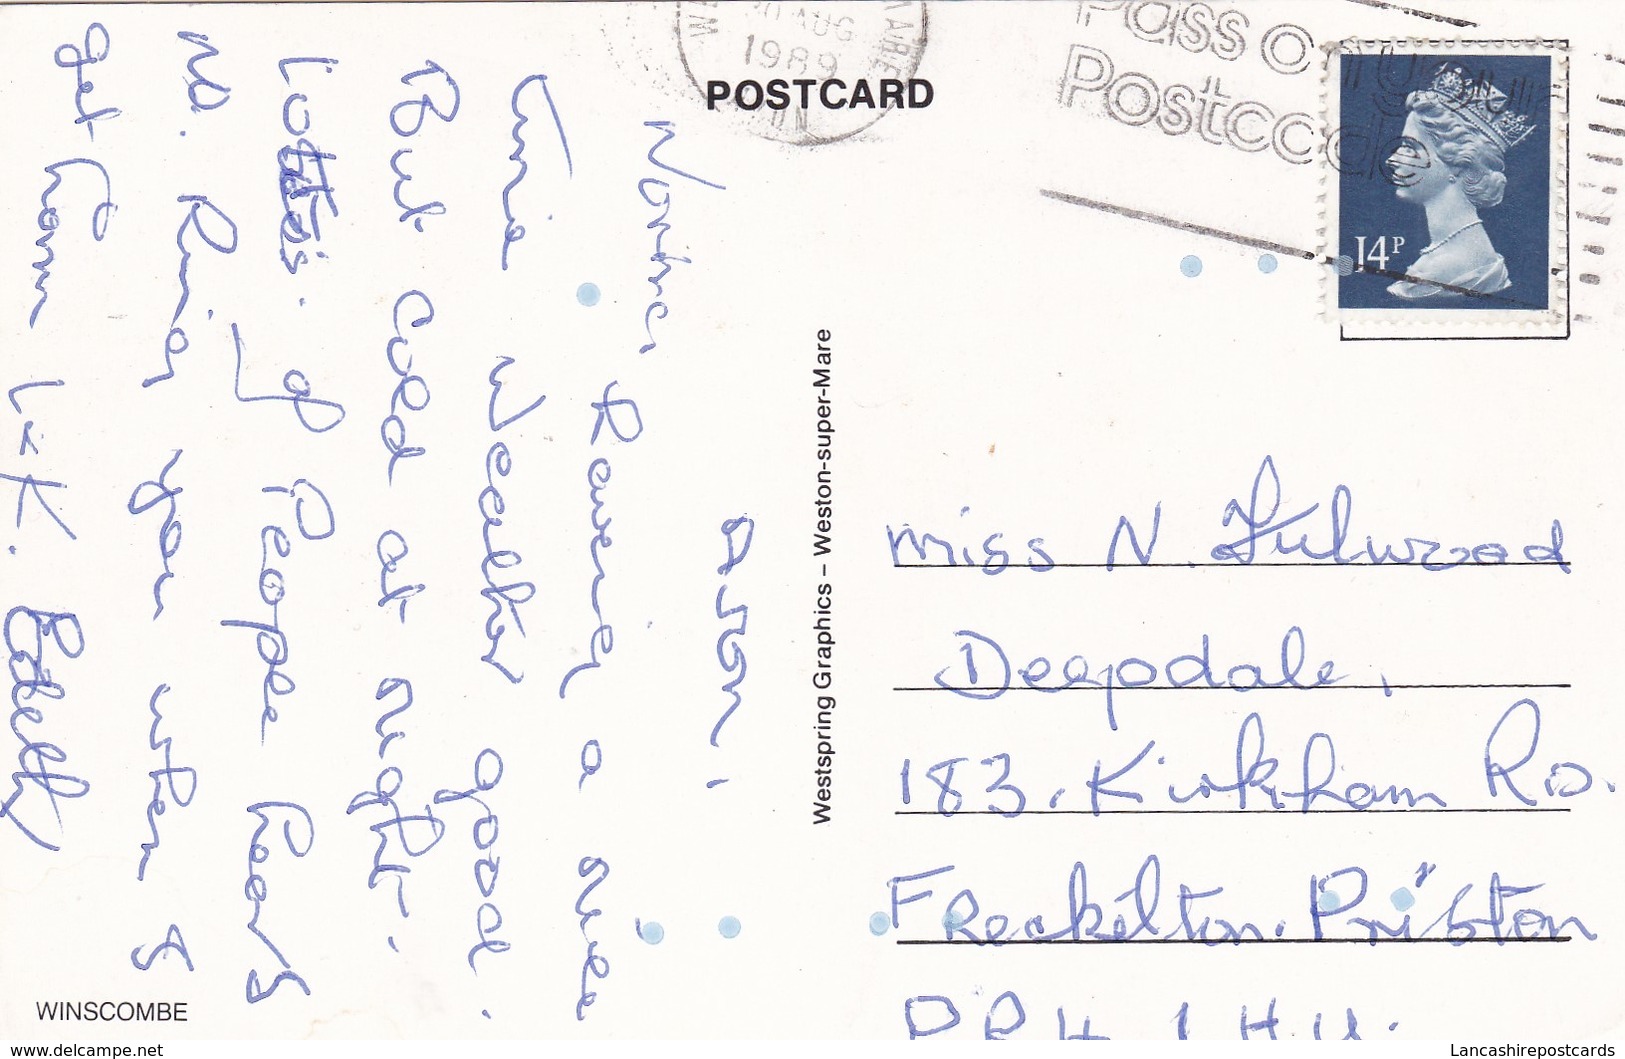 20 AUG
1989
POSTCARD
Pass on your
Postcode
14P
A.Ton.
Norma,
Having a nice
time Weather good.
But cold at night.
Lots of People hears
No. Ring you when I
get home L=K. Edell
Westspring Graphics – Weston-super-Mare
miss N. Fulwood
Deepdale,
183. Kirkham Rd.
Freckelton. Preston
PR4 1HU.
WINSCOMBE
www.delcampe.net
Lancashirepostcards